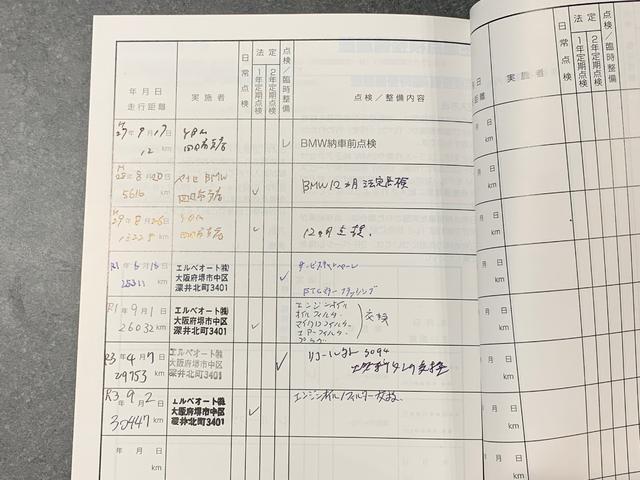 年月日
走行距離
実施者
日常点検
法定
1年定期点検
2年定期点検
点検/臨時整備
点検/整備内容
H
27年9月17日
12 km
四日市店
BMW納車前点検
H
28年8月20日
5616 km
BMW
四日市店
BMW12ヵ月法定点検
H
29年8月26日
km
四日市店
12ヶ月点検.
R1年6月18日
km
エルベオート㈱
大阪府堺市中区
深井北町3401
R1年9月1日
26032 km
エルベオート㈱
大阪府堺市中区
深井北町3401
エンジンオイル
オイルフィルター
マイクロフィルター
エアーフィルター
プラグ
交換
R3年4月7日
29753 km
エルベオート㈱
大阪府堺市中区
深井北町3401
R3年9月2日
30447 km
エルベオート㈱
大阪府堺市中区
深井北町3401
エンジンオイル/フィルター交換
年月日
km
年月日
距離
実施者
日常点検
法定
1年定期点検
2年定期点検
月日
km
月日
km
月日
km
月日
km
月日
km
月日
km
月日
km
月日
km